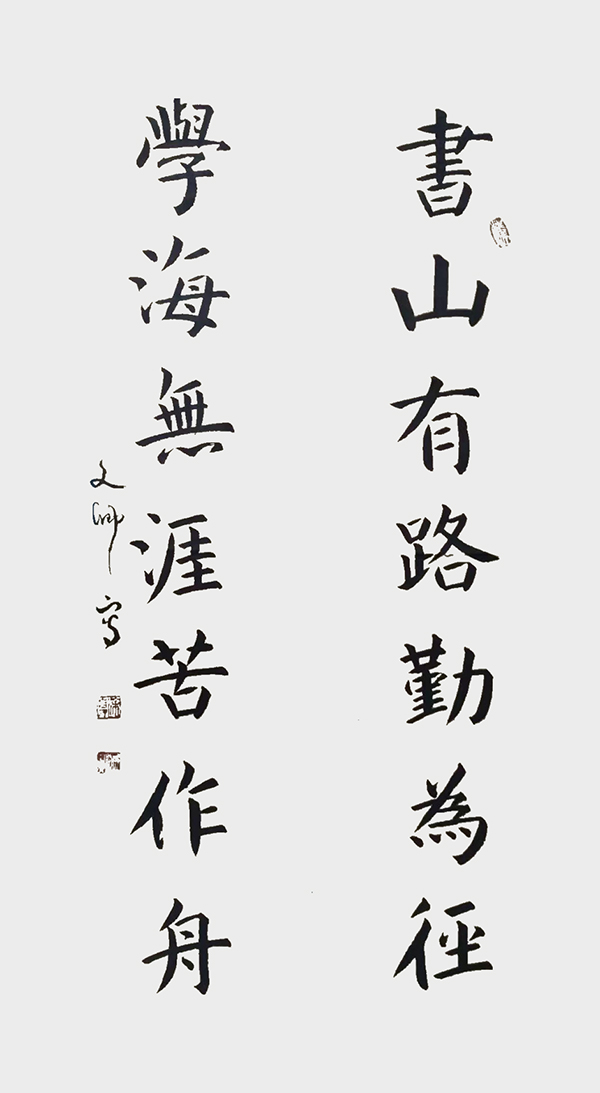 書山有路勤為徑
學海無涯苦作舟
文卿寫